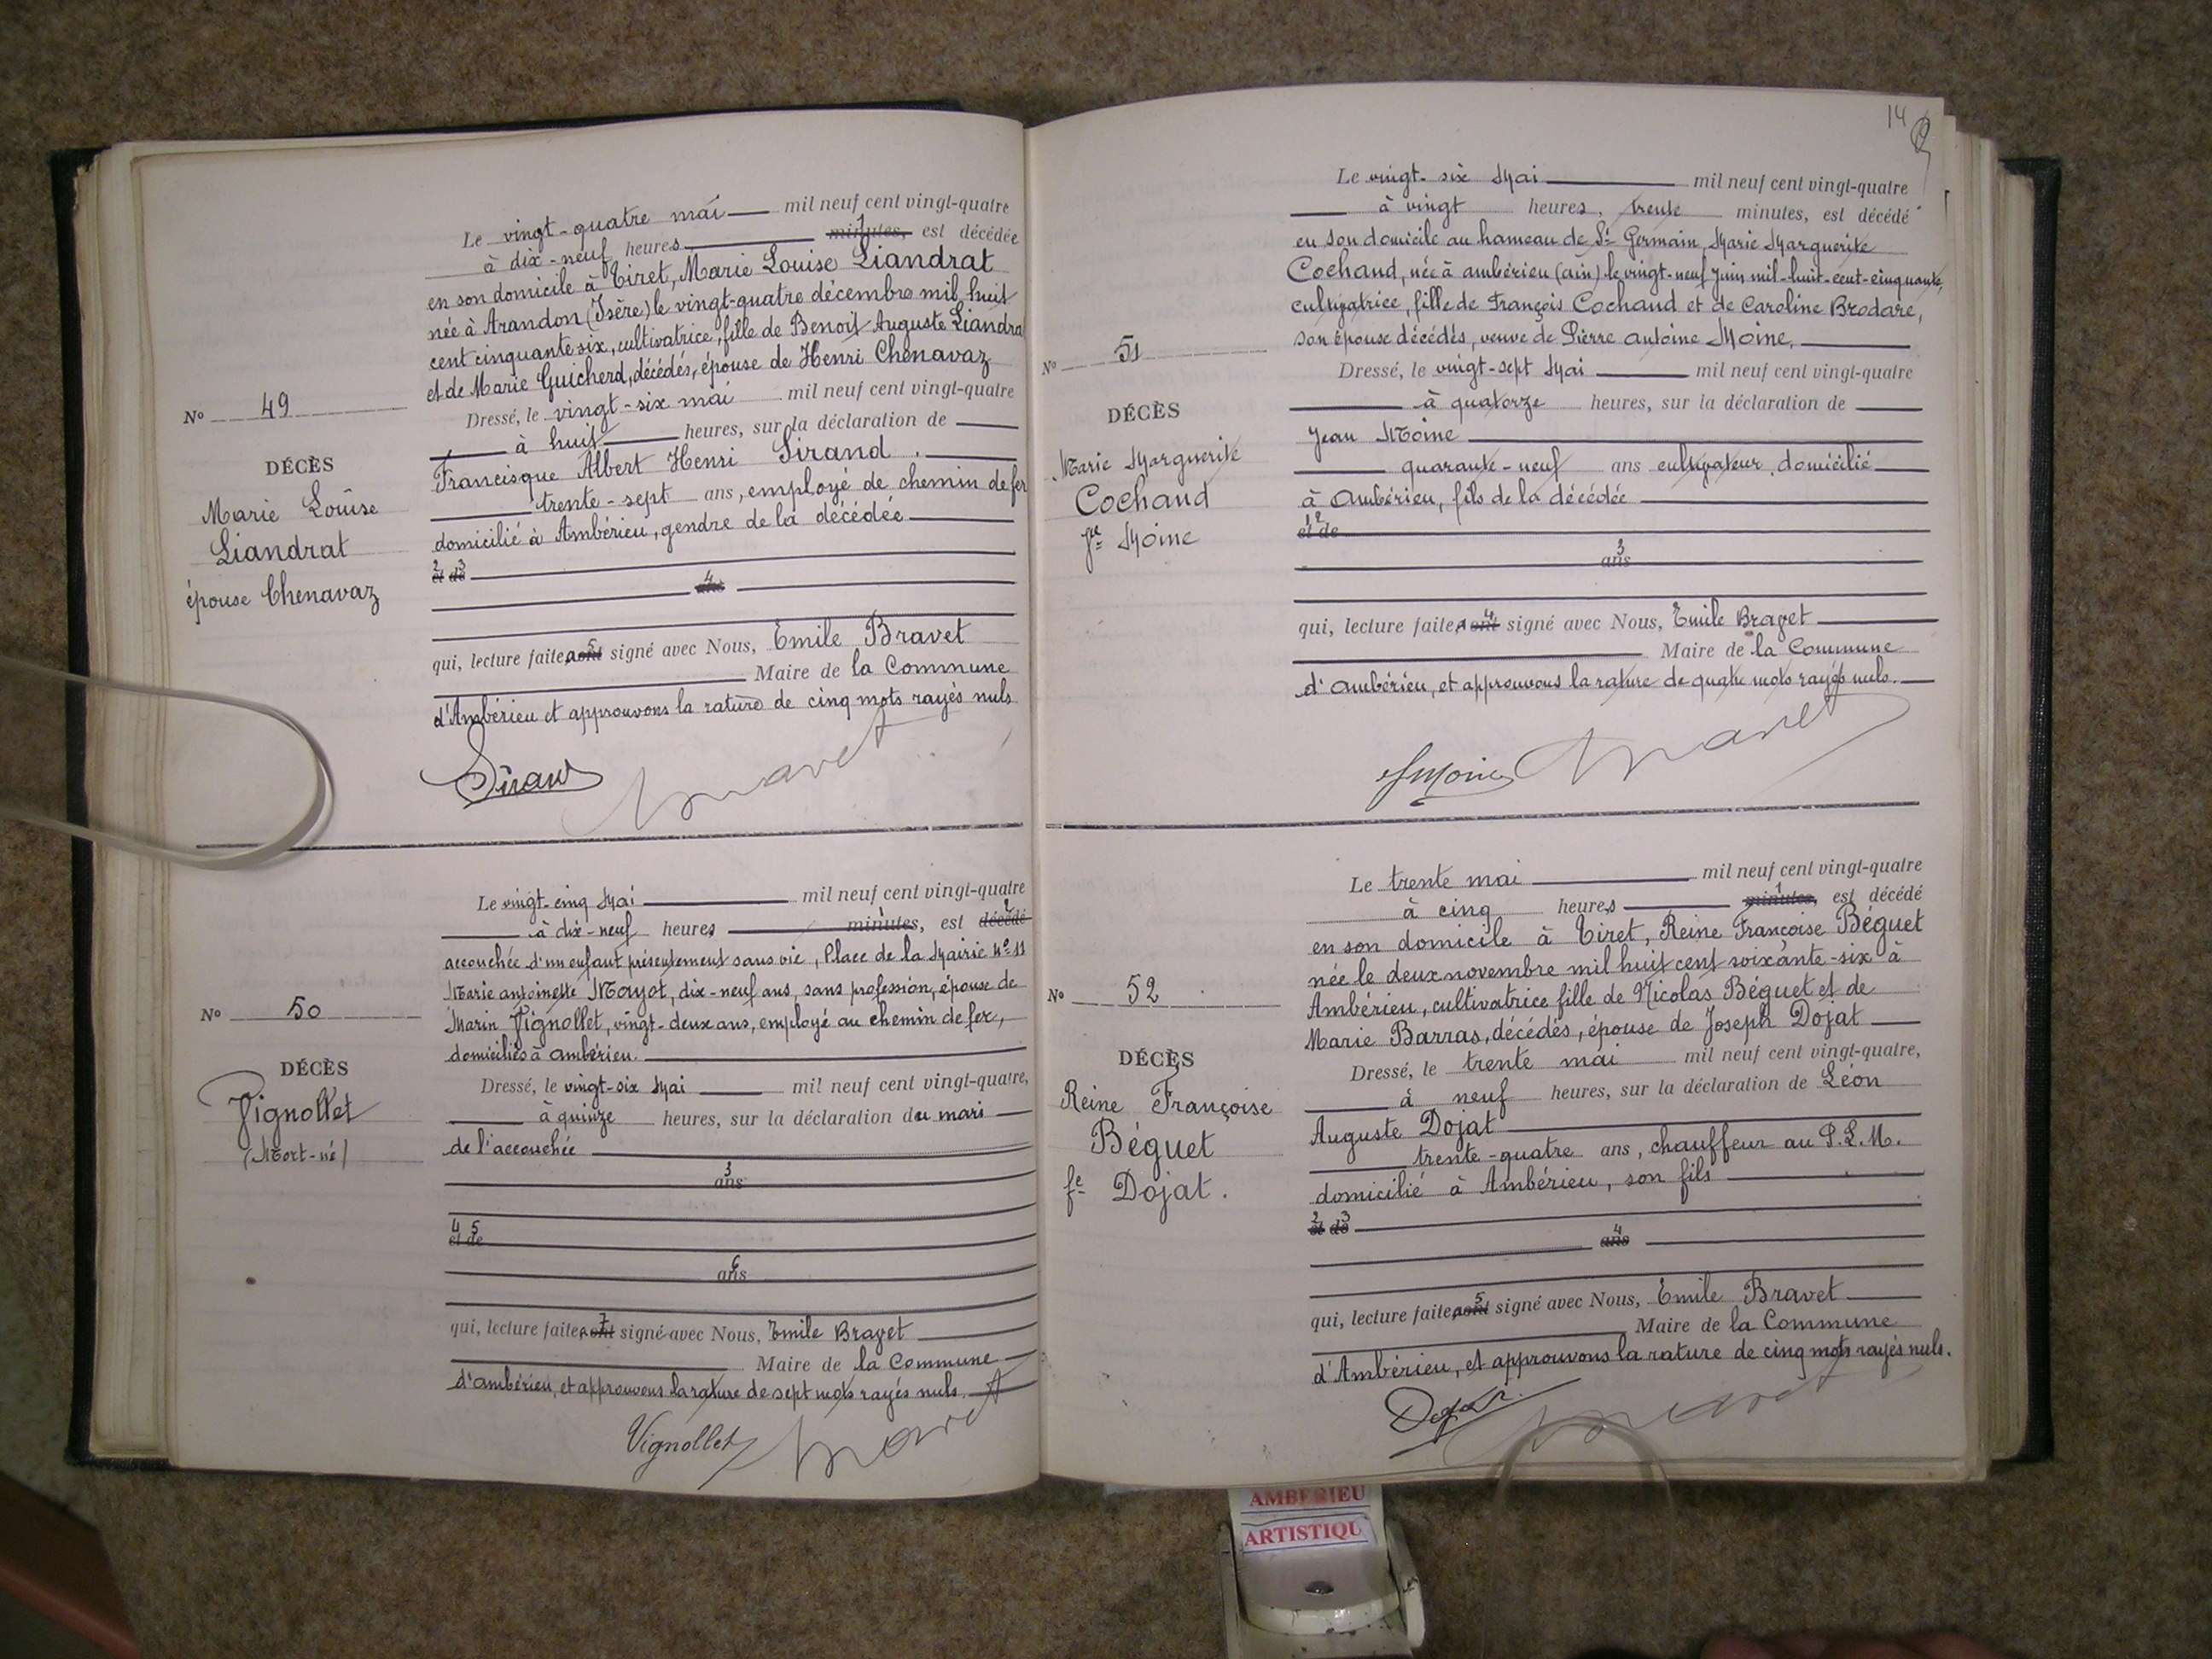 Le vingt-quatre mai mil neuf cent vingt-quatre
à dix-neuf heures minutes, est décédée
en son domicile à Tiret, Marie Louise Liandrat
née à Arandon (Isère) le vingt-quatre décembre mil huit
cent cinquante six, cultivatrice, fille de Benoit Auguste Liandra
et de Marie Guicherd, décédés, épouse de Henri Chenavaz
N° 49
Dressé, le vingt-six mai mil neuf cent vingt-quatre
à huit heures, sur la déclaration de
DÉCÈS
Marie Louise
Liandrat
épouse Chenavaz
Francisque Albert Henri Sirand.
trente-sept ans, employé de chemin de fer
domicilié à Ambérieu, gendre de la décédée
2 3
et de
4
ans
5
qui, lecture faite, a ont signé avec Nous, Emile Bravet
Maire de la Commune
d'Ambérieu et approuvons la rature de cinq mots rayés nuls
Sirand Bravet
Le vingt-cinq Mai mil neuf cent vingt-quatre
à dix-neuf heures minutes, est décédé
accouchée d'un enfant présentement sans vie, Place de la Mairie N° 11
Marie antoinette Mayot, dix-neuf ans, sans profession, épouse de
Marin Vignollet, vingt-deux ans, employé au chemin de fer,
domiciliés à ambérieu.
N° 50
DÉCÈS
Vignollet
(Mort-né)
Dressé, le vingt-six Mai mil neuf cent vingt-quatre,
à quinze heures, sur la déclaration du mari
de l'accouchée
3
ans
4 5
et de
6
ans
7
qui, lecture faite, a ont signé avec Nous, Emile Bravet
Maire de la Commune
d'ambérieu, et approuvons la rature de sept mots rayés nuls.
Vignollet Bravet
14
Le vingt-six Mai mil neuf cent vingt-quatre
à vingt heures, trente minutes, est décédé
en son domicile au hameau de St Germain, Marie Marguerite
Cochand, née à ambérieu (ain) le vingt-neuf Juin mil-huit-cent-cinquante,
cultivatrice, fille de François Cochand et de Caroline Brodare,
son épouse décédés, veuve de Pierre antoine Moine.
N° 51
DÉCÈS
Marie Marguerite
Cochand
Vve Moine
Dressé, le vingt-sept Mai mil neuf cent vingt-quatre
à quatorze heures, sur la déclaration de
Jean Moine
quarante-neuf ans cultivateur, domicilié
à Ambérieu, fils de la décédée
1 2
et de
3
ans
4
qui, lecture faite, a ont signé avec Nous, Emile Bravet
Maire de la Commune
d'ambérieu, et approuvons la rature de quatre mots rayés nuls.
Moine Bravet
Le trente mai mil neuf cent vingt-quatre
à cinq heures minutes, est décédé
en son domicile à Tiret, Reine Françoise Béguet
née le deux novembre mil huit cent soixante-six à
Ambérieu, cultivatrice fille de Nicolas Béguet et de
Marie Barras, décédés, épouse de Joseph Dojat
N° 52
DÉCÈS
Reine Françoise
Béguet
fe Dojat.
Dressé, le trente mai mil neuf cent vingt-quatre,
à neuf heures, sur la déclaration de Léon
Auguste Dojat
trente-quatre ans, chauffeur au P.L.M.
domicilié à Ambérieu, son fils
2 3
et de
4
ans
5
qui, lecture faite, a ont signé avec Nous, Emile Bravet
Maire de la Commune
d'Ambérieu, et approuvons la rature de cinq mots rayés nuls.
Dojat Bravet
AMBERIEU
ARTISTIQU